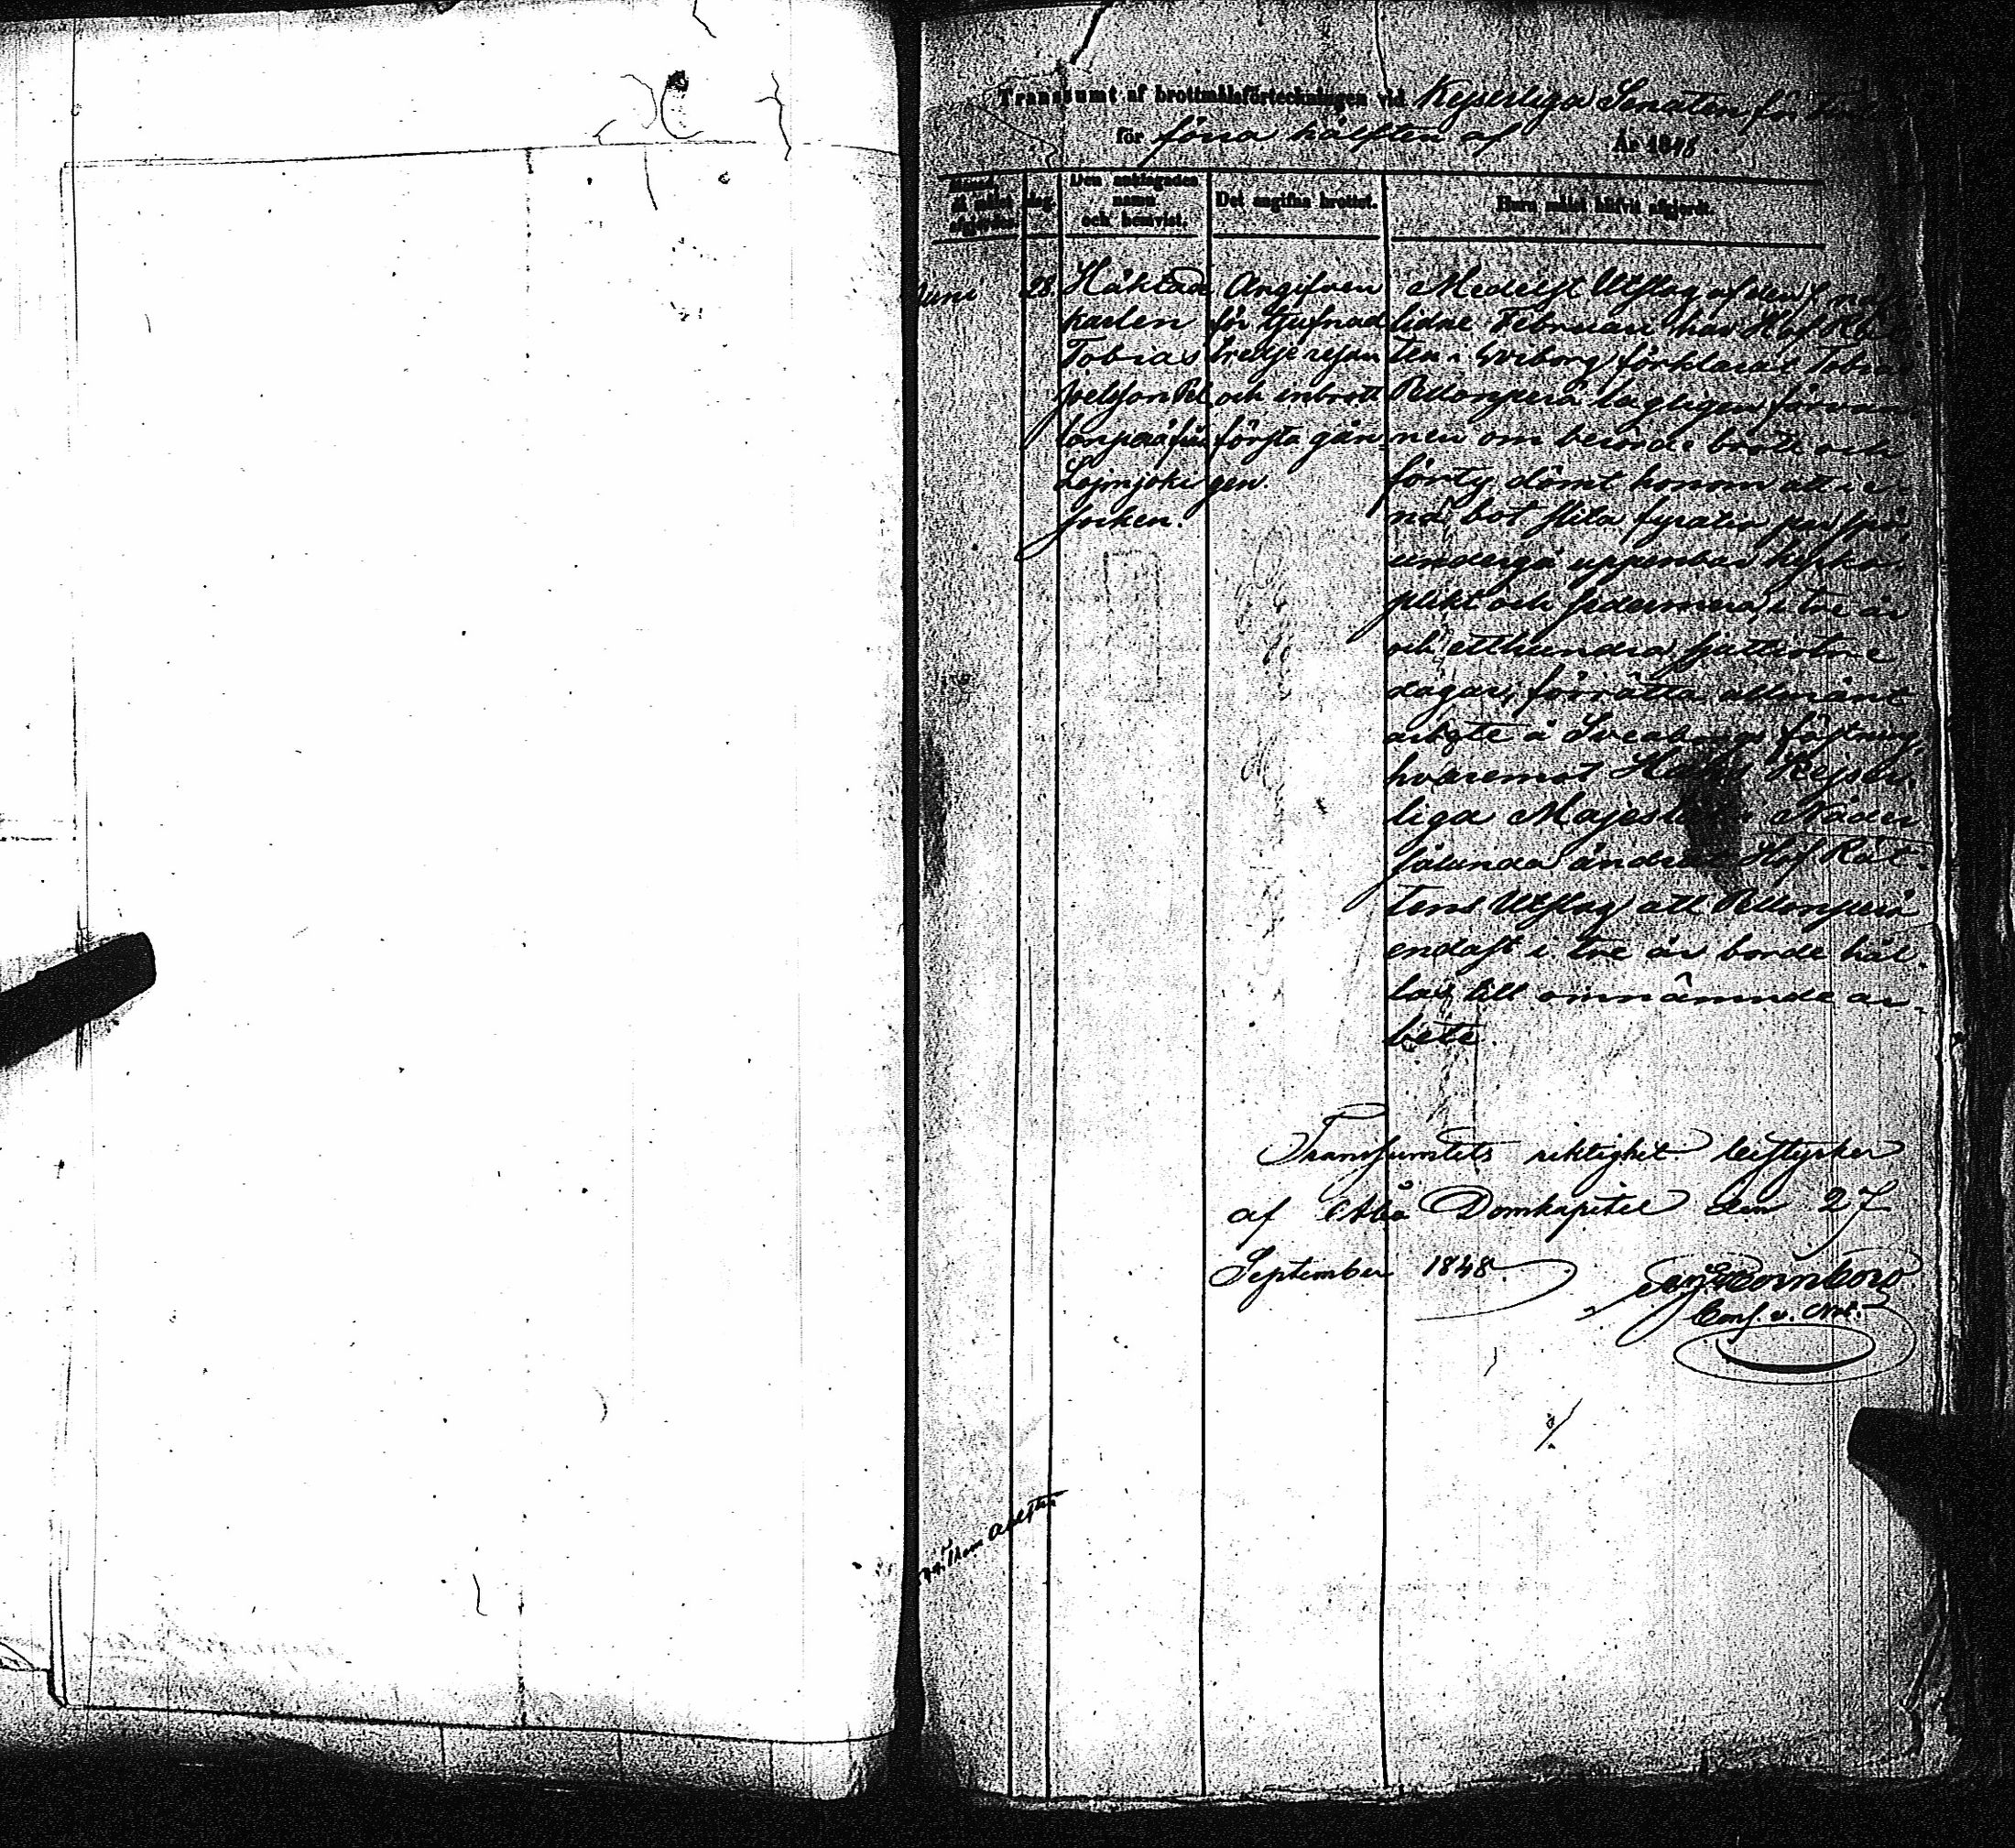 Transsumt af brottmålsförteckningen vid Kejserliga Senaten för
för förra hälften af År 1848.
Månad då målet afgjordes.
dag.
Den anklagades namn och hemvist.
Det angifna brottet.
Huru målet blifvit afgjordt.
Juni
28
Häktade
karlen
Tobias
Joelsson Pel
lonperä från
Loimjoki
socken.
Angifven
för tjufnad
tredje resan
och inbrott
första gån
gen
Medelst Utslag af den
lidne Februari har Hof Rät
ten i Wiborg förklarat Tobias
Pellonperä lagligen förvun
nen om berörde brott och
förty dömt honom att i
bot slita fyratio par spö,
undergå uppenbar kyrko
plikt och sedermera, i tre år
och etthundra sjuttiotre
dagar, förrätta allmänt
arbete å Sveaborgs fästning,
hvaremot Hans Kejser
liga Majestät i Nåder
sålunda ändrat Hof Rät
tens Utslag att Pellonperä
endast i tre år borde hål
las till omnämnde ar
bete.
Transsumtets riktighet bestyrker
af Åbo Domkapitel den 27
September 1848.
Cons. v. Not.